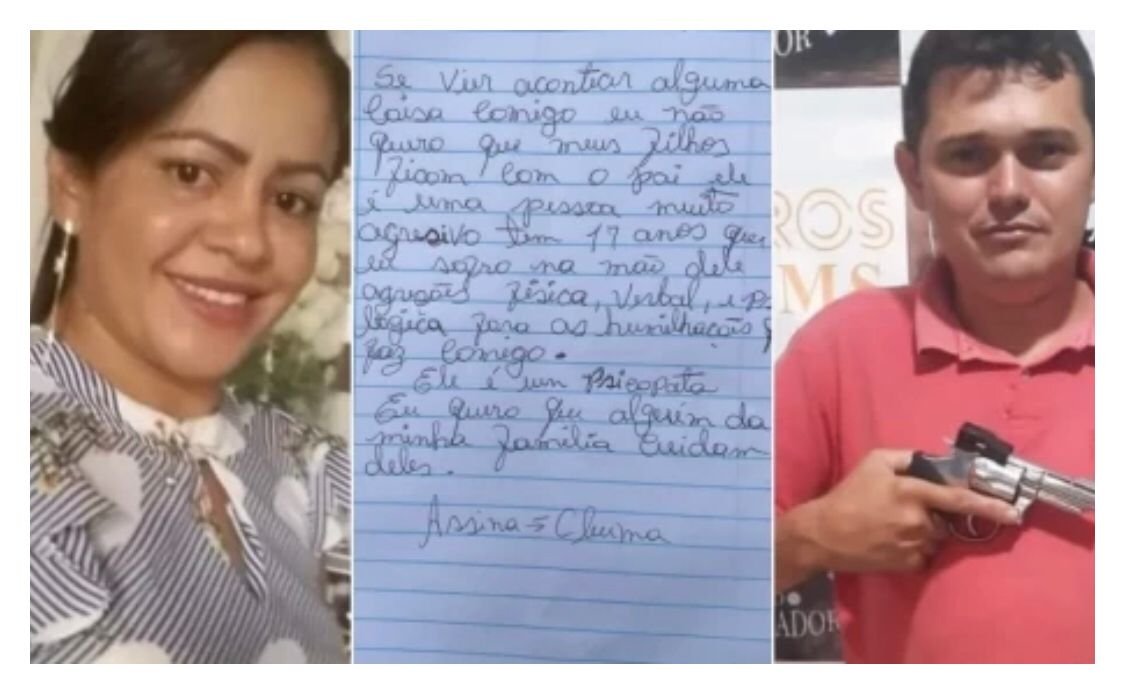 Se Vier acontiar alguma
Coisa Comigo eu não
quero que meus filhos
ficam Com o pai ele
é uma pessoa muito
agresivo tem 17 anos que
eu sofro na mão dele
agresões física, Verbal, e ps
logica fora as humilhações q
faz Comigo.
Ele é um Psicopata
Eu quero que alguém da
minha família Cuidam
deles.
Assina = Cleuma
OR
ROS
MS
ADOR